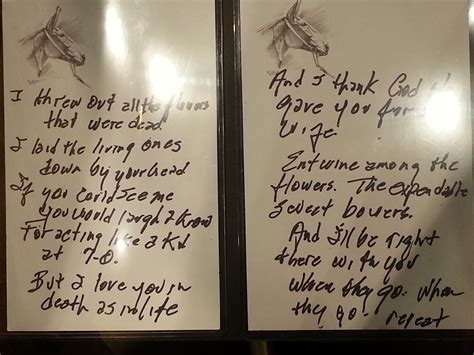 I threw out all the flowers
that were dead
I laid the living ones
down by your head
If you could see me
you would laugh I know
For acting like a Kid
at 7-0.
But I love you in
death as in life
And I thank God
gave you for
wife.
Entwine among the
flowers. The expendable
sweet bowers.
And I'll be right
there with you
When they go. When
they go. repeat